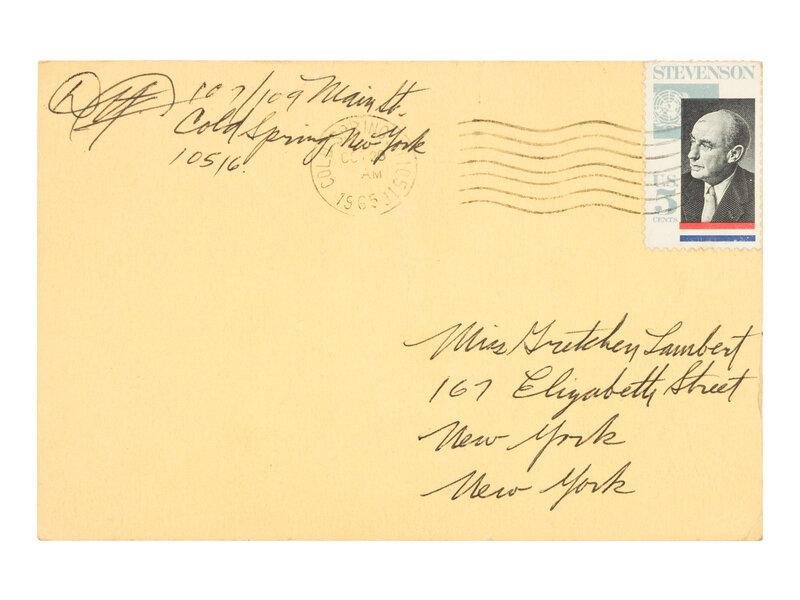 107/109 Main St.
Cold Spring New York
10516.
AM
1965
STEVENSON
U.S.
5
CENTS
Miss Gretchen Lambert
167 Elizabeth Street
New York
New York